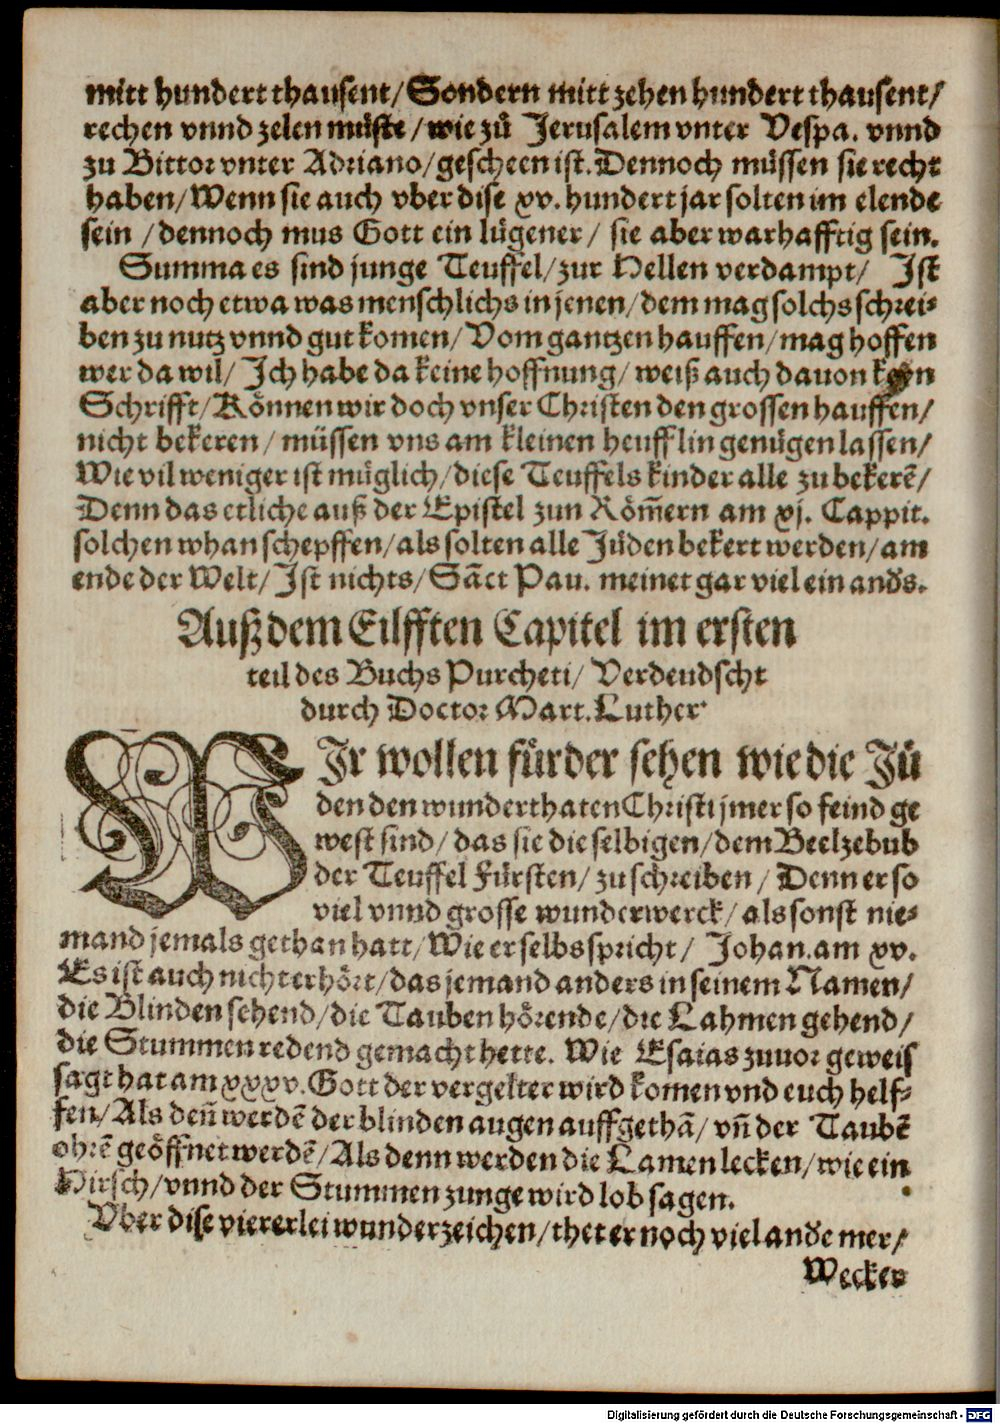 mitt hundert thausent/ Sondern mitt zehen hundert thausent/
rechen vnnd zelen müste / wie zů Jerusalem vnter Vespa. vnnd
zu Bittor vnter Adriano/ gescheen ist. Dennoch müssen sie recht
haben/ Wenn sie auch vber dise xv. hundert jar solten im elende
sein / dennoch mus Gott ein lügener / sie aber warhafftig sein.
Summa es sind junge Teuffel/ zur Hellen verdampt/ Ist
aber noch etwa was menschlichs in jenen/ dem mag solchs schrei-
ben zu nutz vnnd gut komen/ Vom gantzen hauffen/ mag hoffen
wer da wil/ Ich habe da keine hoffnung/ weiß auch dauon keyn
Schrifft/ Können wir doch vnser Christen den grossen hauffen/
nicht bekeren / müssen vns am kleinen heufflin genügen lassen/
Wie vil weniger ist müglich/ diese Teuffels kinder alle zu bekerē/
Denn das etliche auß der Epistel zun Röm̃ern am xj. Cappit.
solchen whan schepffen/ als solten alle Jüden bekert werden/ am
ende der Welt/ Ist nichts/ Sāct Pau. meinet gar viel ein anđs.
Auß dem Eilfften Capitel im ersten
teil des Buchs Purcheti/ Verdeudscht
durch Doctor Mart. Luther
WIr wollen fürder sehen wie die Jü
den den wunderthaten Christi jmer so feind ge
west sind/ das sie die selbigen/ dem Beelzebub
der Teuffel Fürsten/ zu schreiben / Denn er so
viel vnnd grosse wunderwerck/ als sonst nie-
mand jemals gethan hatt/ Wie er selbs spricht/ Johan. am xv.
Es ist auch nicht erhört/ das jemand anders in seinem Namen/
die Blinden sehend/ die Tauben hörende/ die Lahmen gehend/
die Stummen redend gemacht hette. Wie Esaias zuuor geweis
sagt hat am xxxv. Gott der vergelter wird komen vnd euch helf-
fen/ Als deñ werdē der blinden augen auffgethā/ vñ der Taubē
ohrē geöffnet werdē/ Als denn werden die Lamen lecken/ wie ein
Hirsch/ vnnd der Stummen zunge wird lob sagen.
Vber dise viererlei wunderzeichen/ thet er noch viel anđe mer/
Wecket
Digitalisierung gefördert durch die Deutsche Forschungsgemeinschaft - DFG